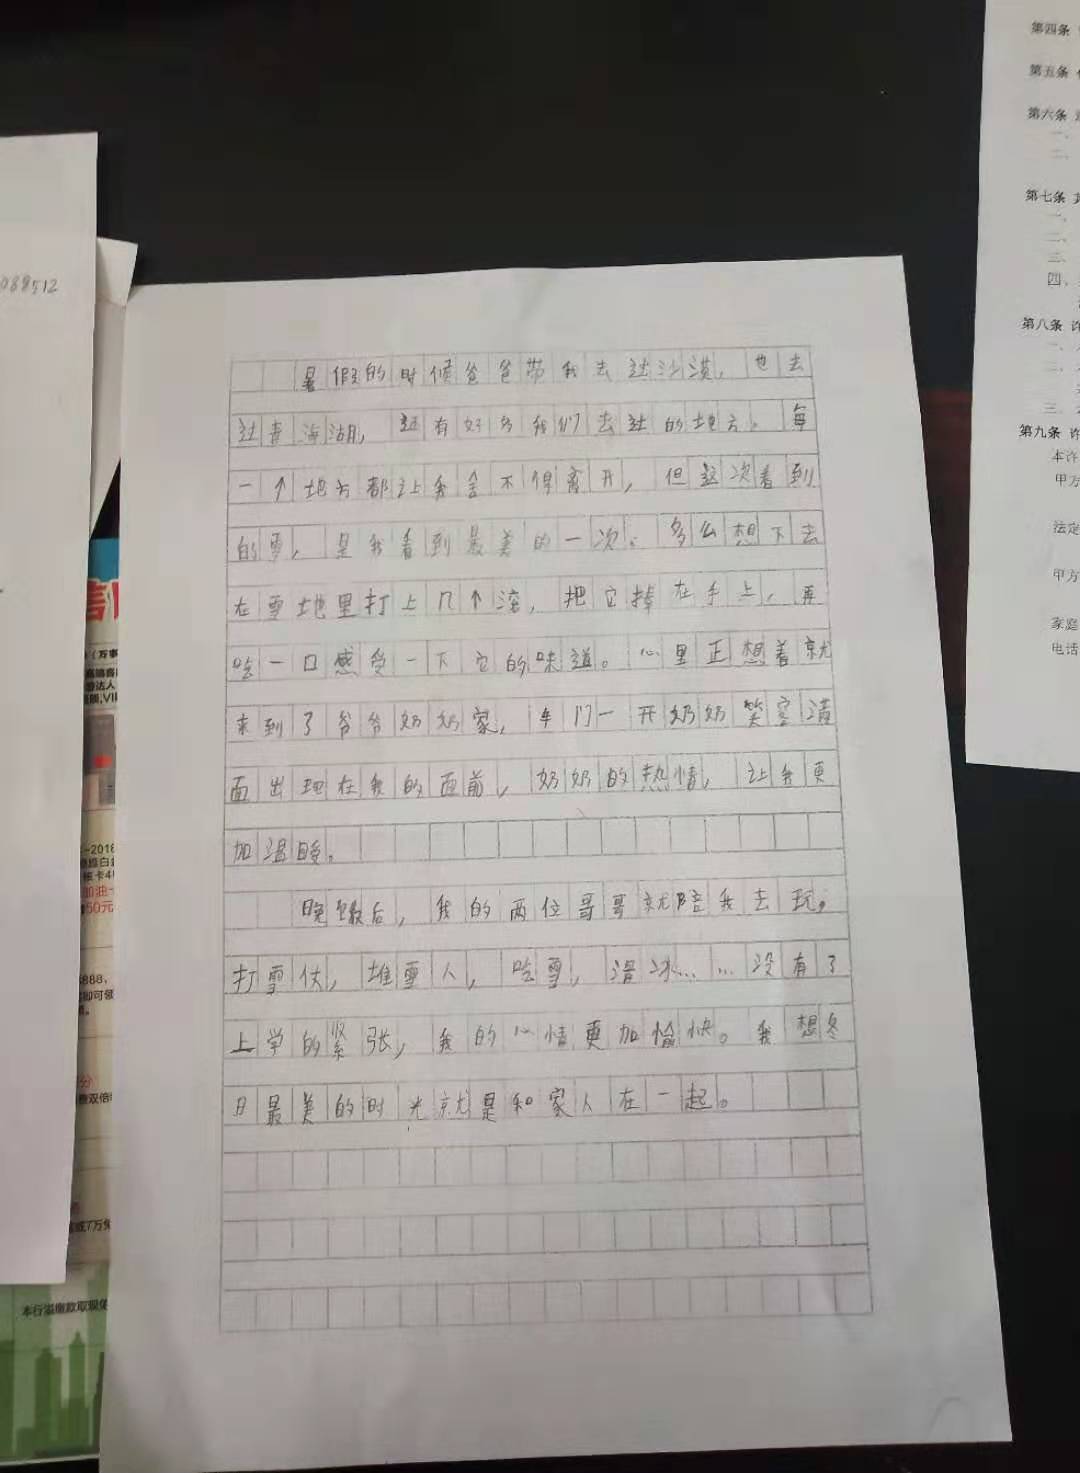 暑假的时候爸爸带我去过沙漠，也去
过青海湖，还有好多我们去过的地方。每
一个地方都让我舍不得离开，但这次看到
的雪，是我看到最美的一次。多么想下去
在雪地里打上几个滚，把它捧在手上，再
吃一口感受一下它的味道。心里正想着就
来到了爷爷奶奶家，车门一开奶奶笑容满
面出现在我的面前，奶奶的热情，让我更
加温暖。
晚饭后，我的两位哥哥就陪我去玩。
打雪仗，堆雪人，吃雪，滑冰……没有了
上学的紧张，我的心情更加愉快。我想冬
日最美的时光就是和家人在一起。
088512
第四条
第五条
第六条
一、
二、
第七条
一、
二、
三、
四、
第八条 许
一、
二、
三、
第九条 许
本许
甲方
法定
甲方
家庭
电话
-2018
50元
888，
即可领
分
双倍
7万